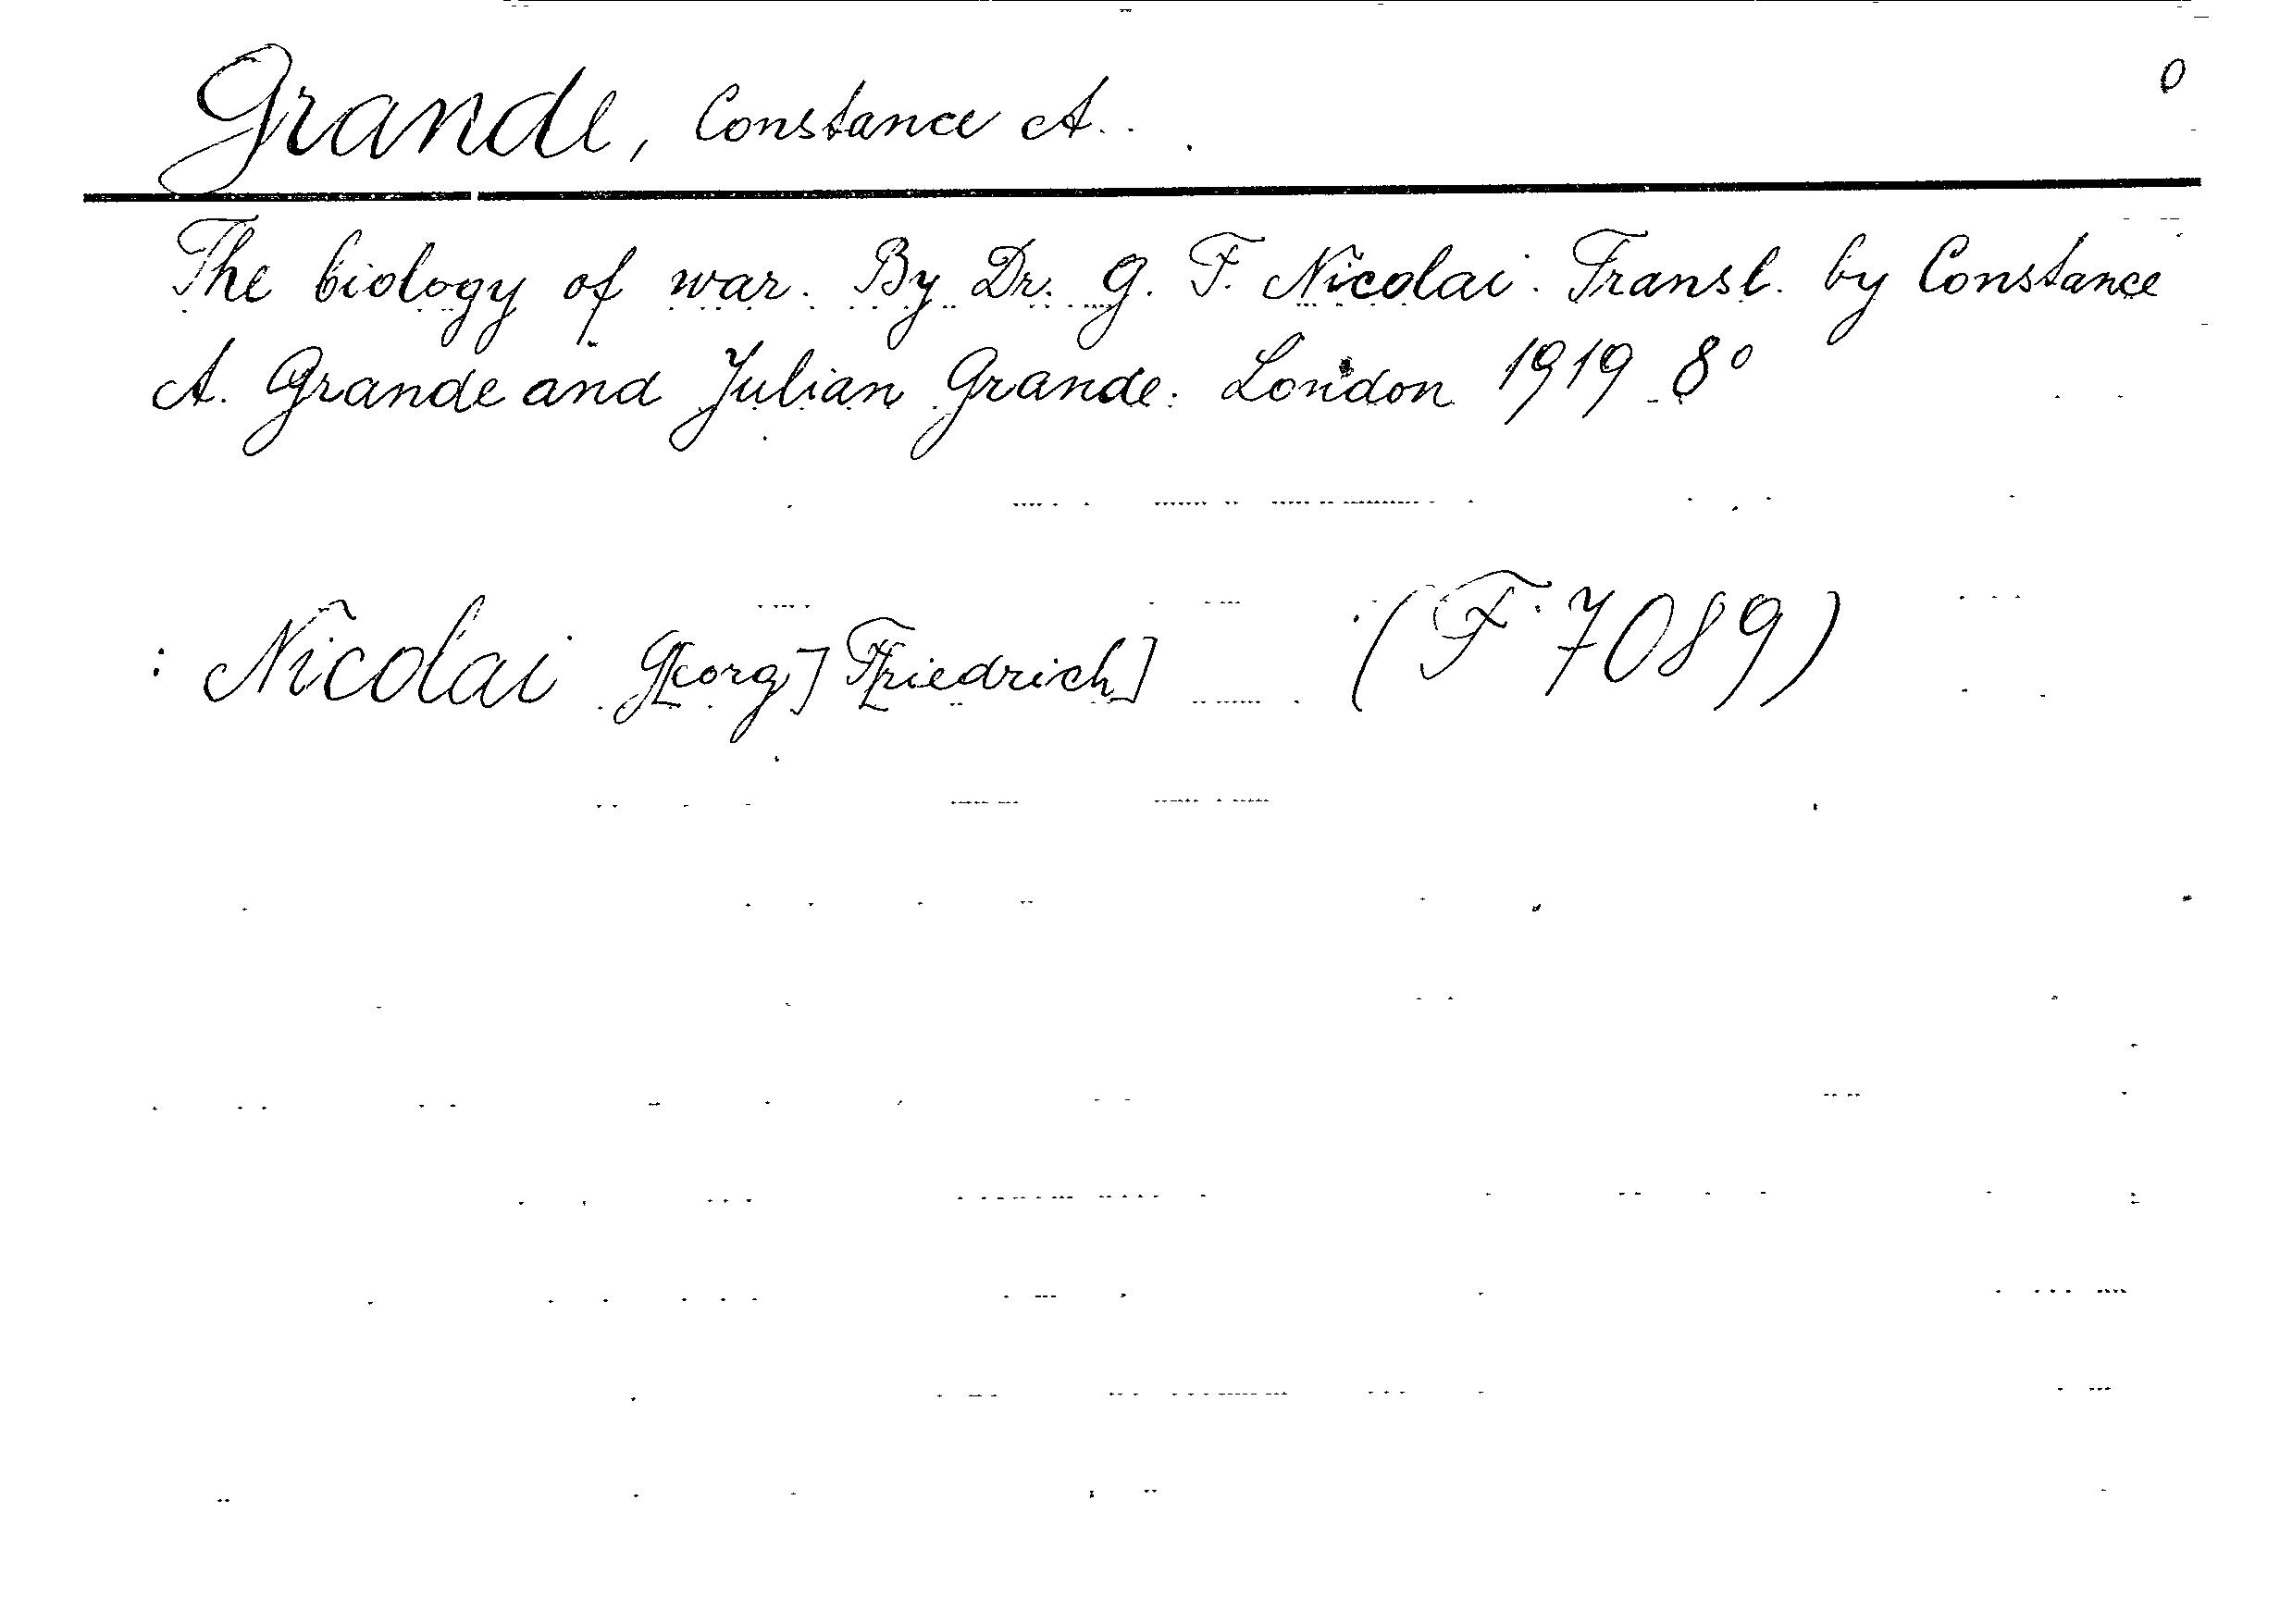 Grande, Constance A.. 0
The biology of war. By Dr. G. F. Nicolai. Transl. by Constance
A. Grande and Julian Grande. London 1919 8°
: Nicolai G[eorg] F[riedrich] (F 7089)